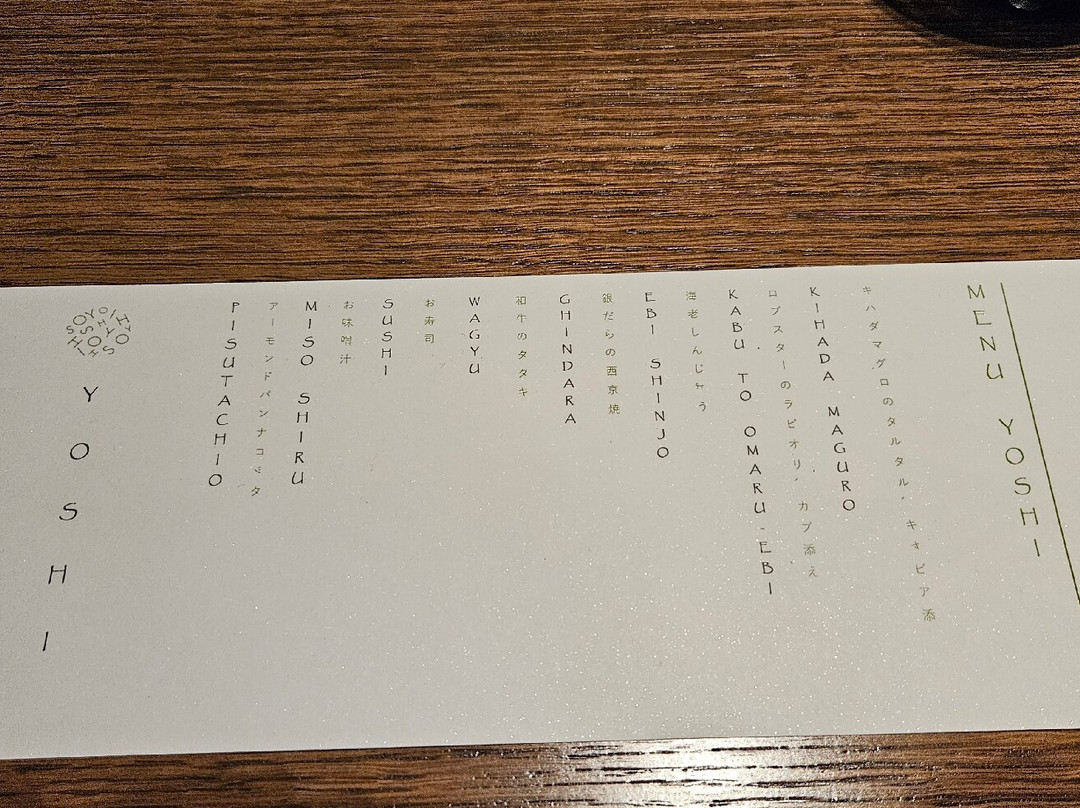 MENU YOSHI
キハダマグロのタルタル、キャビア添
KIHADA MAGURO
ロブスターのラビオリ、カブ添え
KABU TO OMARU-EBI
海老しんじょう
EBI SHINJO
銀だらの西京焼
GHINDARA
和牛のタタキ
WAGYU
お寿司
SUSHI
お味噌汁
MISO SHIRU
アーモンドパンナコッタ
PISUTACHIO
YOSHI